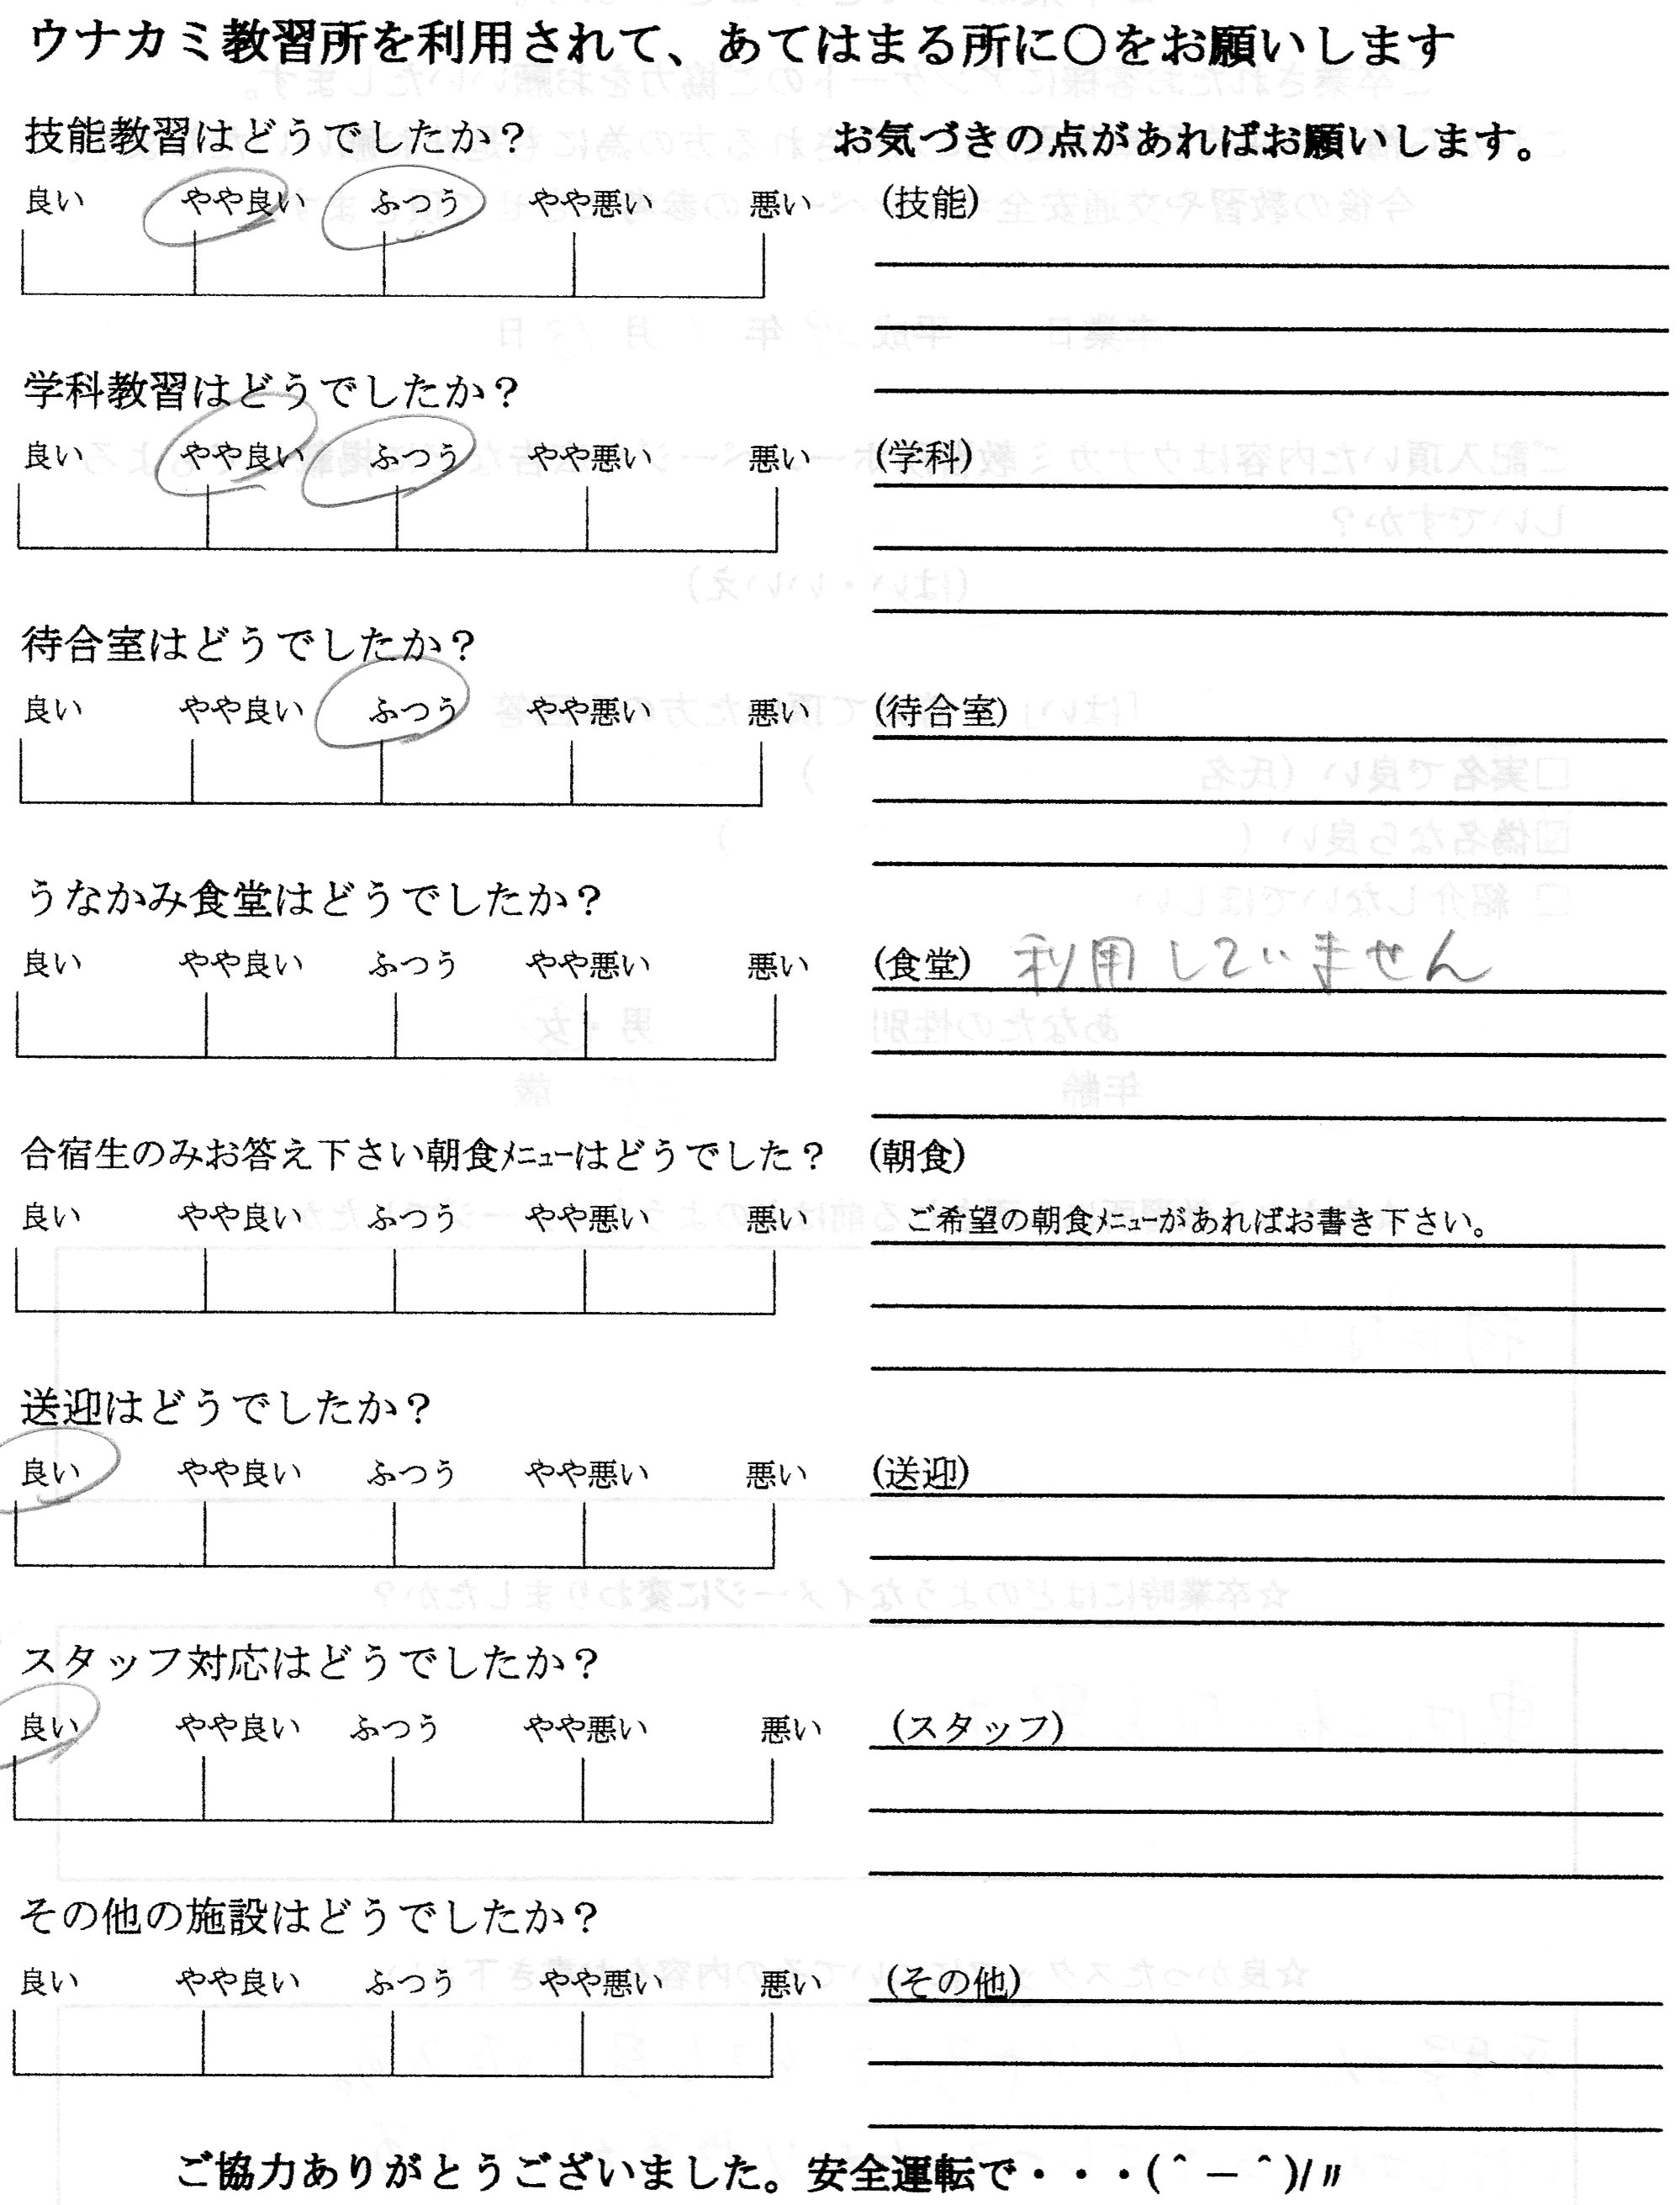 ウナカミ教習所を利用されて、あてはまる所に〇をお願いします
技能教習はどうでしたか？
お気づきの点があればお願いします。
良い やや良い ふつう やや悪い 悪い (技能)
学科教習はどうでしたか？
良い やや良い ふつう やや悪い 悪い (学科)
待合室はどうでしたか？
良い やや良い ふつう やや悪い 悪い (待合室)
うなかみ食堂はどうでしたか？
良い やや良い ふつう やや悪い 悪い (食堂) 利用していません
合宿生のみお答え下さい朝食ﾒﾆｭｰはどうでした？ (朝食)
良い やや良い ふつう やや悪い 悪い ご希望の朝食ﾒﾆｭｰがあればお書き下さい。
送迎はどうでしたか？
良い やや良い ふつう やや悪い 悪い (送迎)
スタッフ対応はどうでしたか？
良い やや良い ふつう やや悪い 悪い (スタッフ)
その他の施設はどうでしたか？
良い やや良い ふつう やや悪い 悪い (その他)
ご協力ありがとうございました。安全運転で・・・(＾－＾)/〃